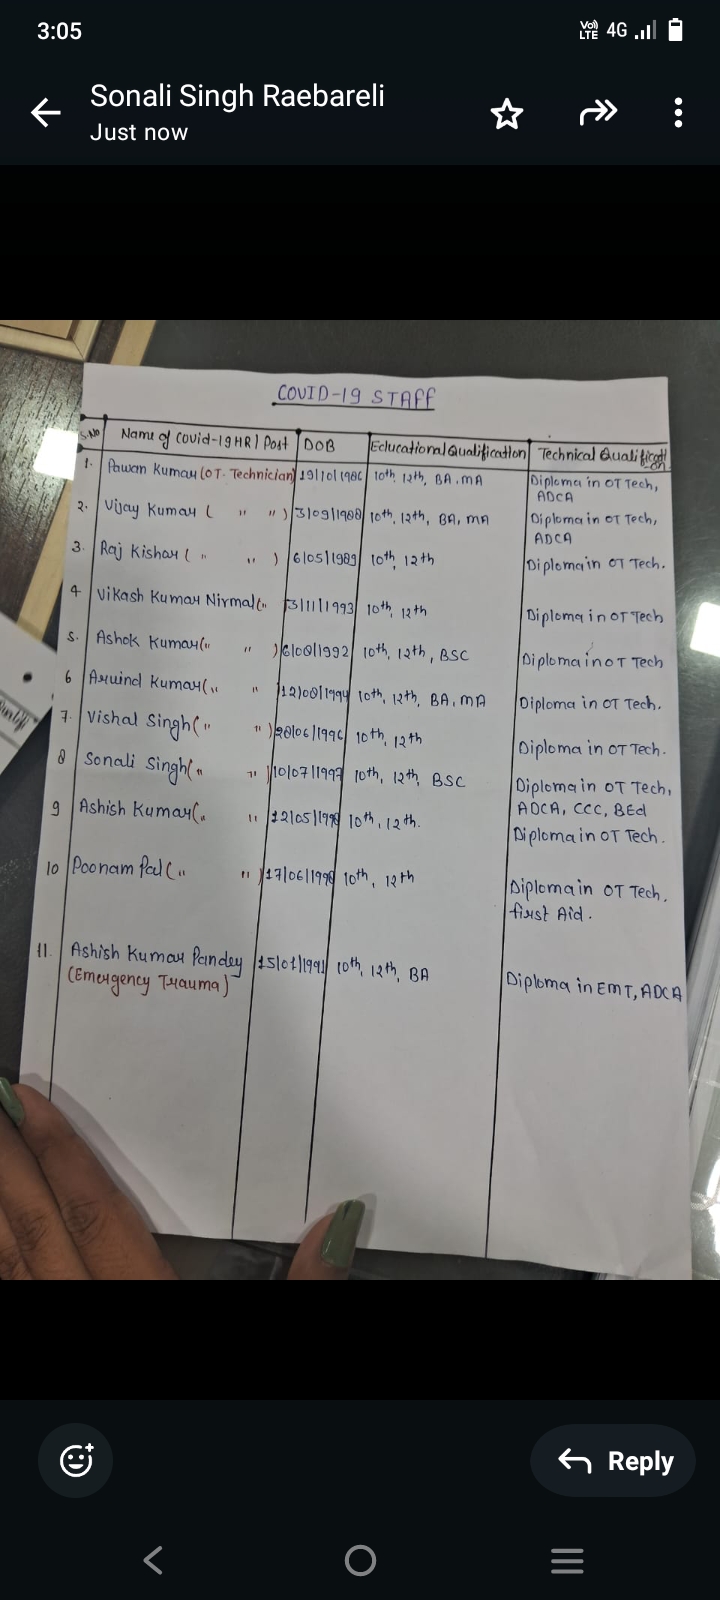 3:05
Vo) LTE 4G
Sonali Singh Raebareli
Just now
COVID-19 STAff
S.No Name of Covid-19 HR / Post DOB Eclucational Qualification Technical Qualification
1. Pawan Kumar (OT. Technician) 19/10/1986 10th, 12th, BA, MA Diploma in OT Tech, ADCA
2. Vijay Kumar ( " " ) 3/09/1988 10th, 12th, BA, MA Diploma in OT Tech, ADCA
3. Raj Kishor ( " " ) 6/05/1989 10th, 12th Diploma in OT Tech.
4 Vikash Kumar Nirmal ( " 3/11/1993 10th, 12th Diploma in OT Tech
5. Ashok Kumar ( " " ) 6/08/1992 10th, 12th, BSC Diploma in OT Tech
6 Arvind Kumar ( " " 12/08/1994 10th, 12th, BA, MA Diploma in OT Tech.
7. Vishal Singh ( " " ) 20/06/1996 10th, 12th Diploma in OT Tech.
8 Sonali Singh ( " " ) 10/07/1997 10th, 12th, BSC Diploma in OT Tech, ADCA, CCC, BEd
9 Ashish Kumar ( " " 12/05/1998 10th, 12th. Diploma in OT Tech.
10 Poonam Pal ( " " ) 17/06/1998 10th, 12th Diploma in OT Tech. first Aid.
11. Ashish Kumar Pandey 15/07/1991 10th, 12th, BA Diploma in EMT, ADCA
(Emergency Trauma)
Reply